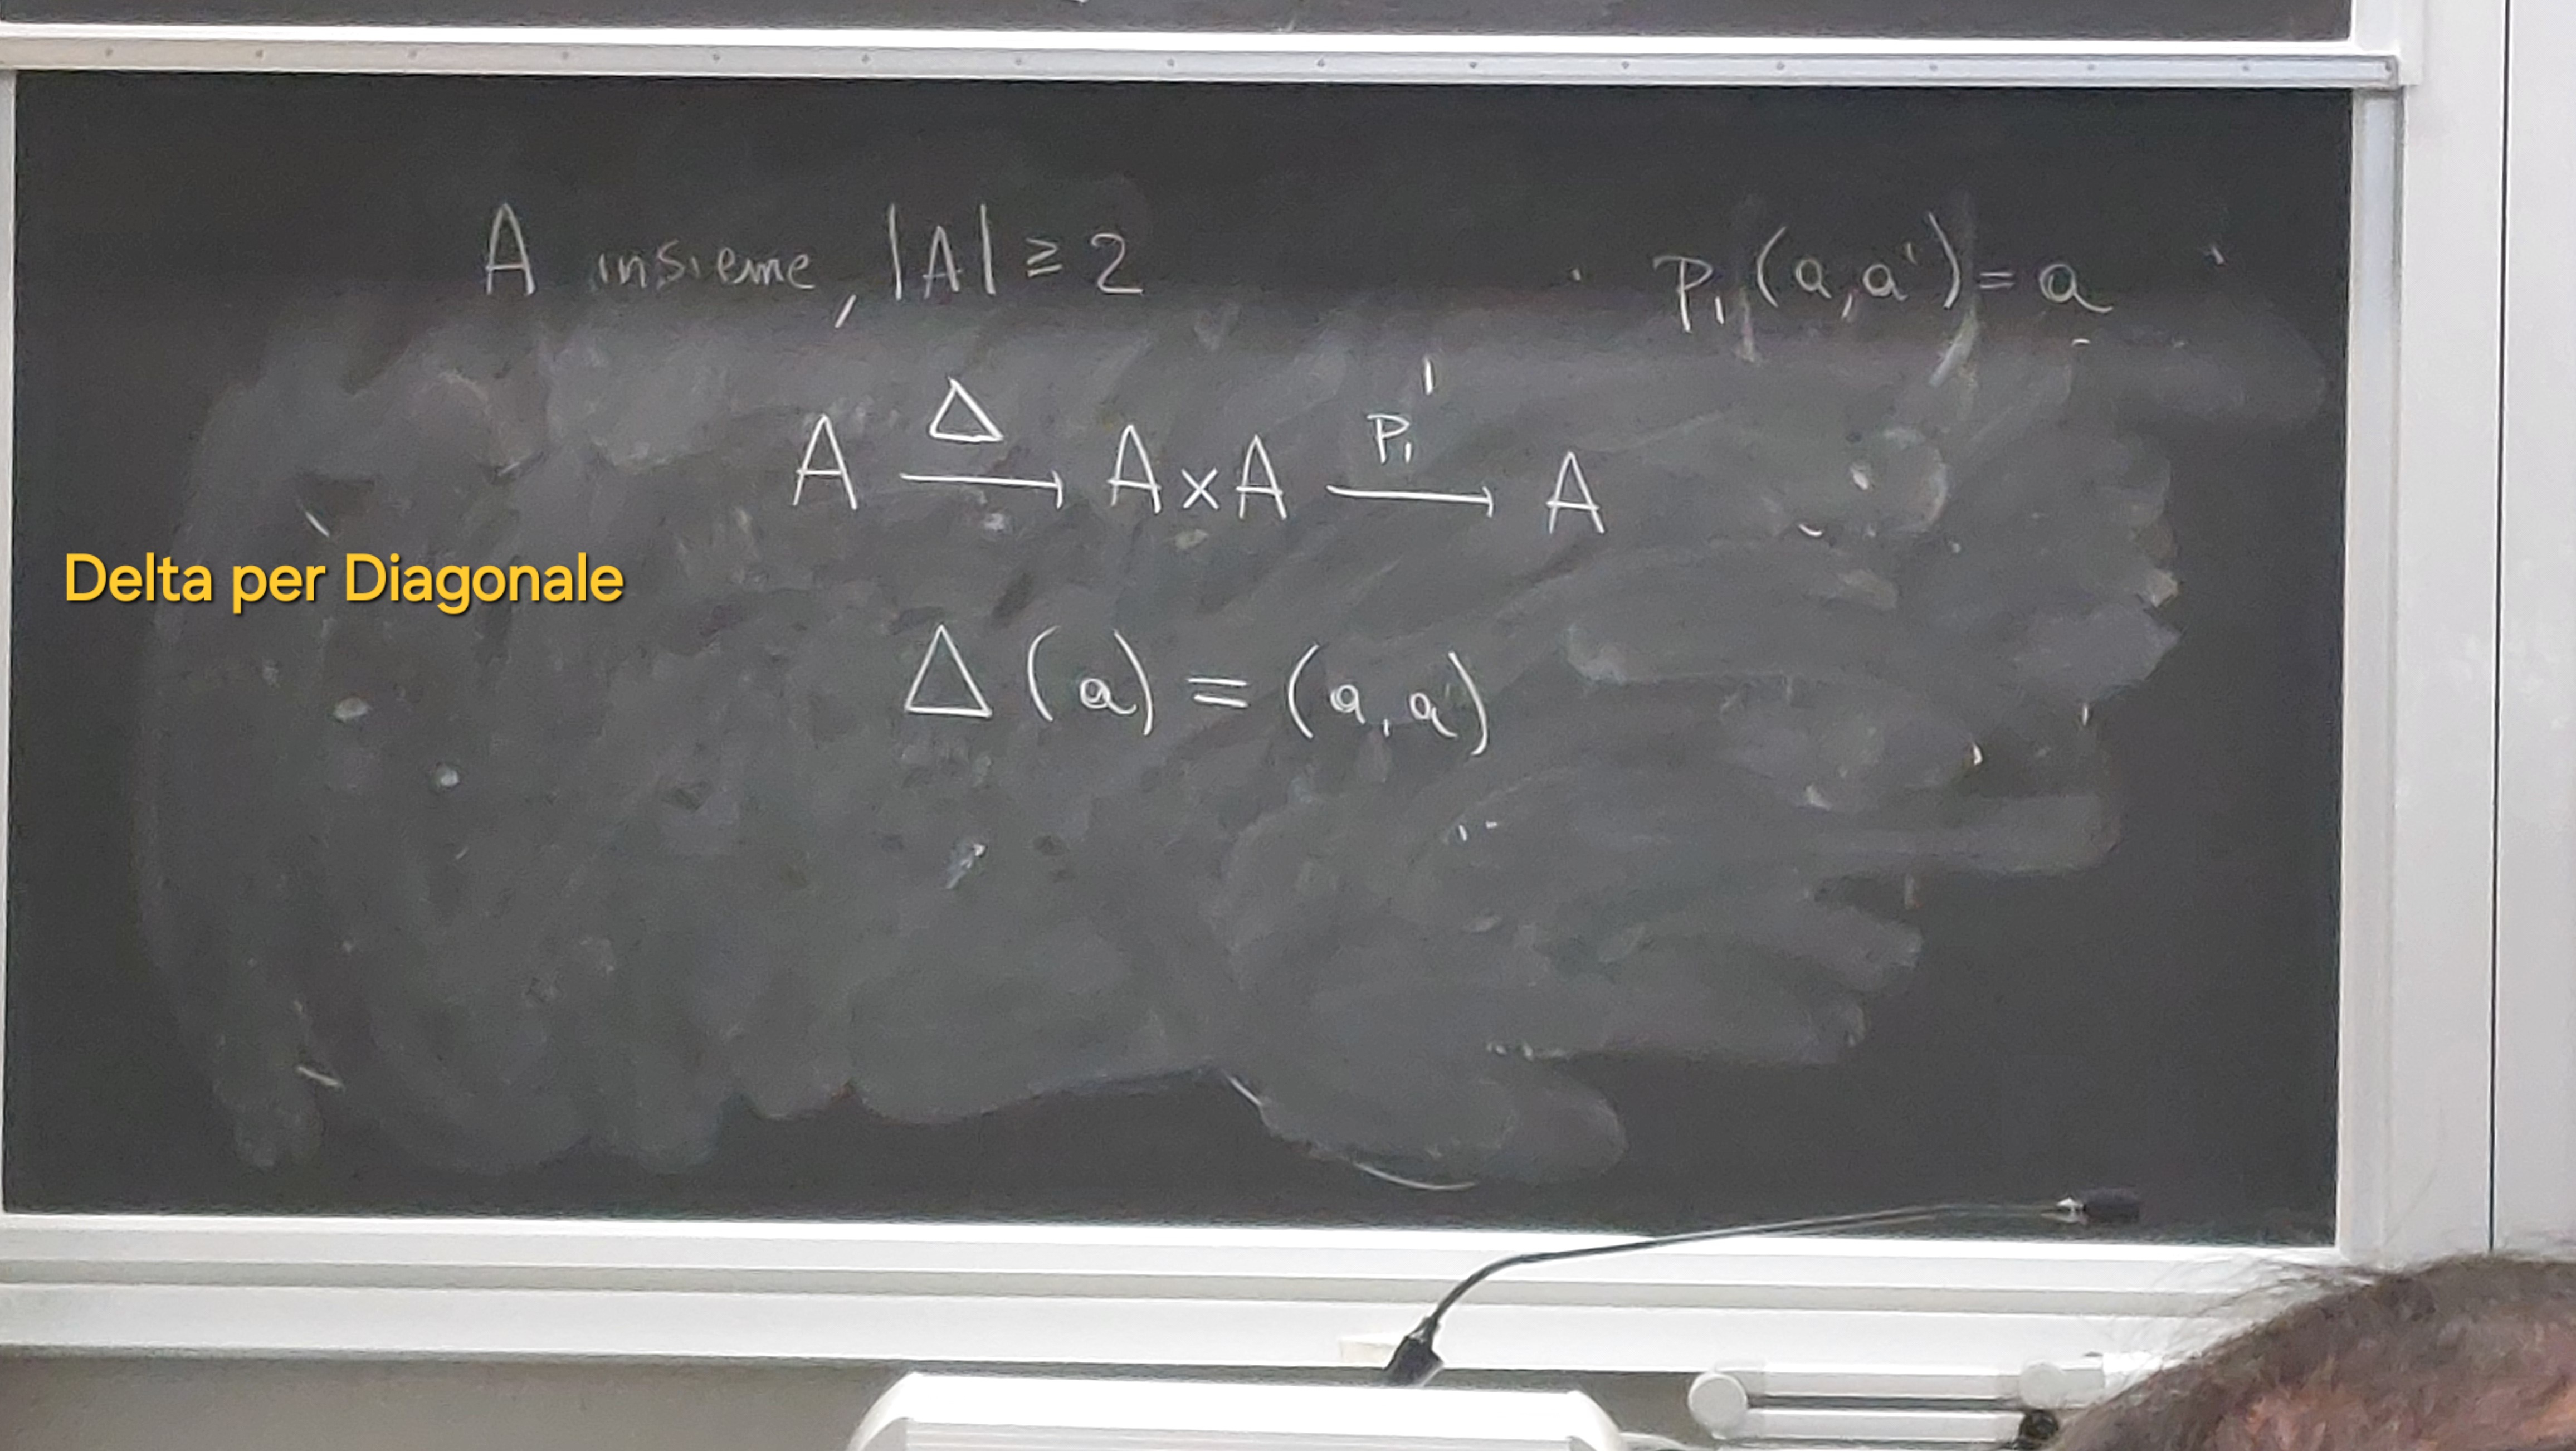 A insieme, |A| ≥ 2
p₁(a,a') = a
A —Δ→ A×A —p₁→ A
Delta per Diagonale
Δ(a) = (a,a)